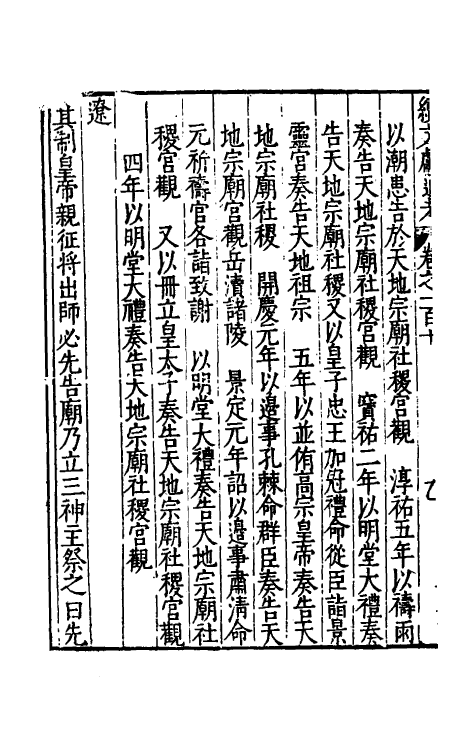 續文獻通考 卷之一百十
以潮患告於天地宗廟社稷宮觀　淳祐五年以禱雨
奏告天地宗廟社稷宮觀　寶祐二年以明堂大禮奏
告天地宗廟社稷又以皇子忠王加冠禮命從臣詣景
靈宮奏告天地祖宗　五年以並侑高宗皇帝奏告天
地宗廟社稷　開慶元年以邊事孔棘命群臣奏告天
地宗廟宮觀岳瀆諸陵　景定元年詔以邊事肅清命
元祈禱官各詣致謝　以明堂大禮奏告天地宗廟社
稷宮觀　又以冊立皇太子奏告天地宗廟社稷宮觀
四年以明堂大禮奏告天地宗廟社稷宮觀
遼
其制皇帝親征將出師必先告廟乃立三神主祭之曰先